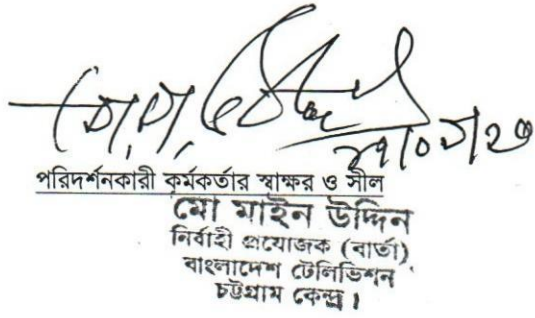 পরিদর্শনকারী কর্মকর্তার স্বাক্ষর ও সীল
মো মাইন উদ্দিন
নির্বাহী প্রযোজক (বার্তা)
বাংলাদেশ টেলিভিশন
চট্টগ্রাম কেন্দ্র।